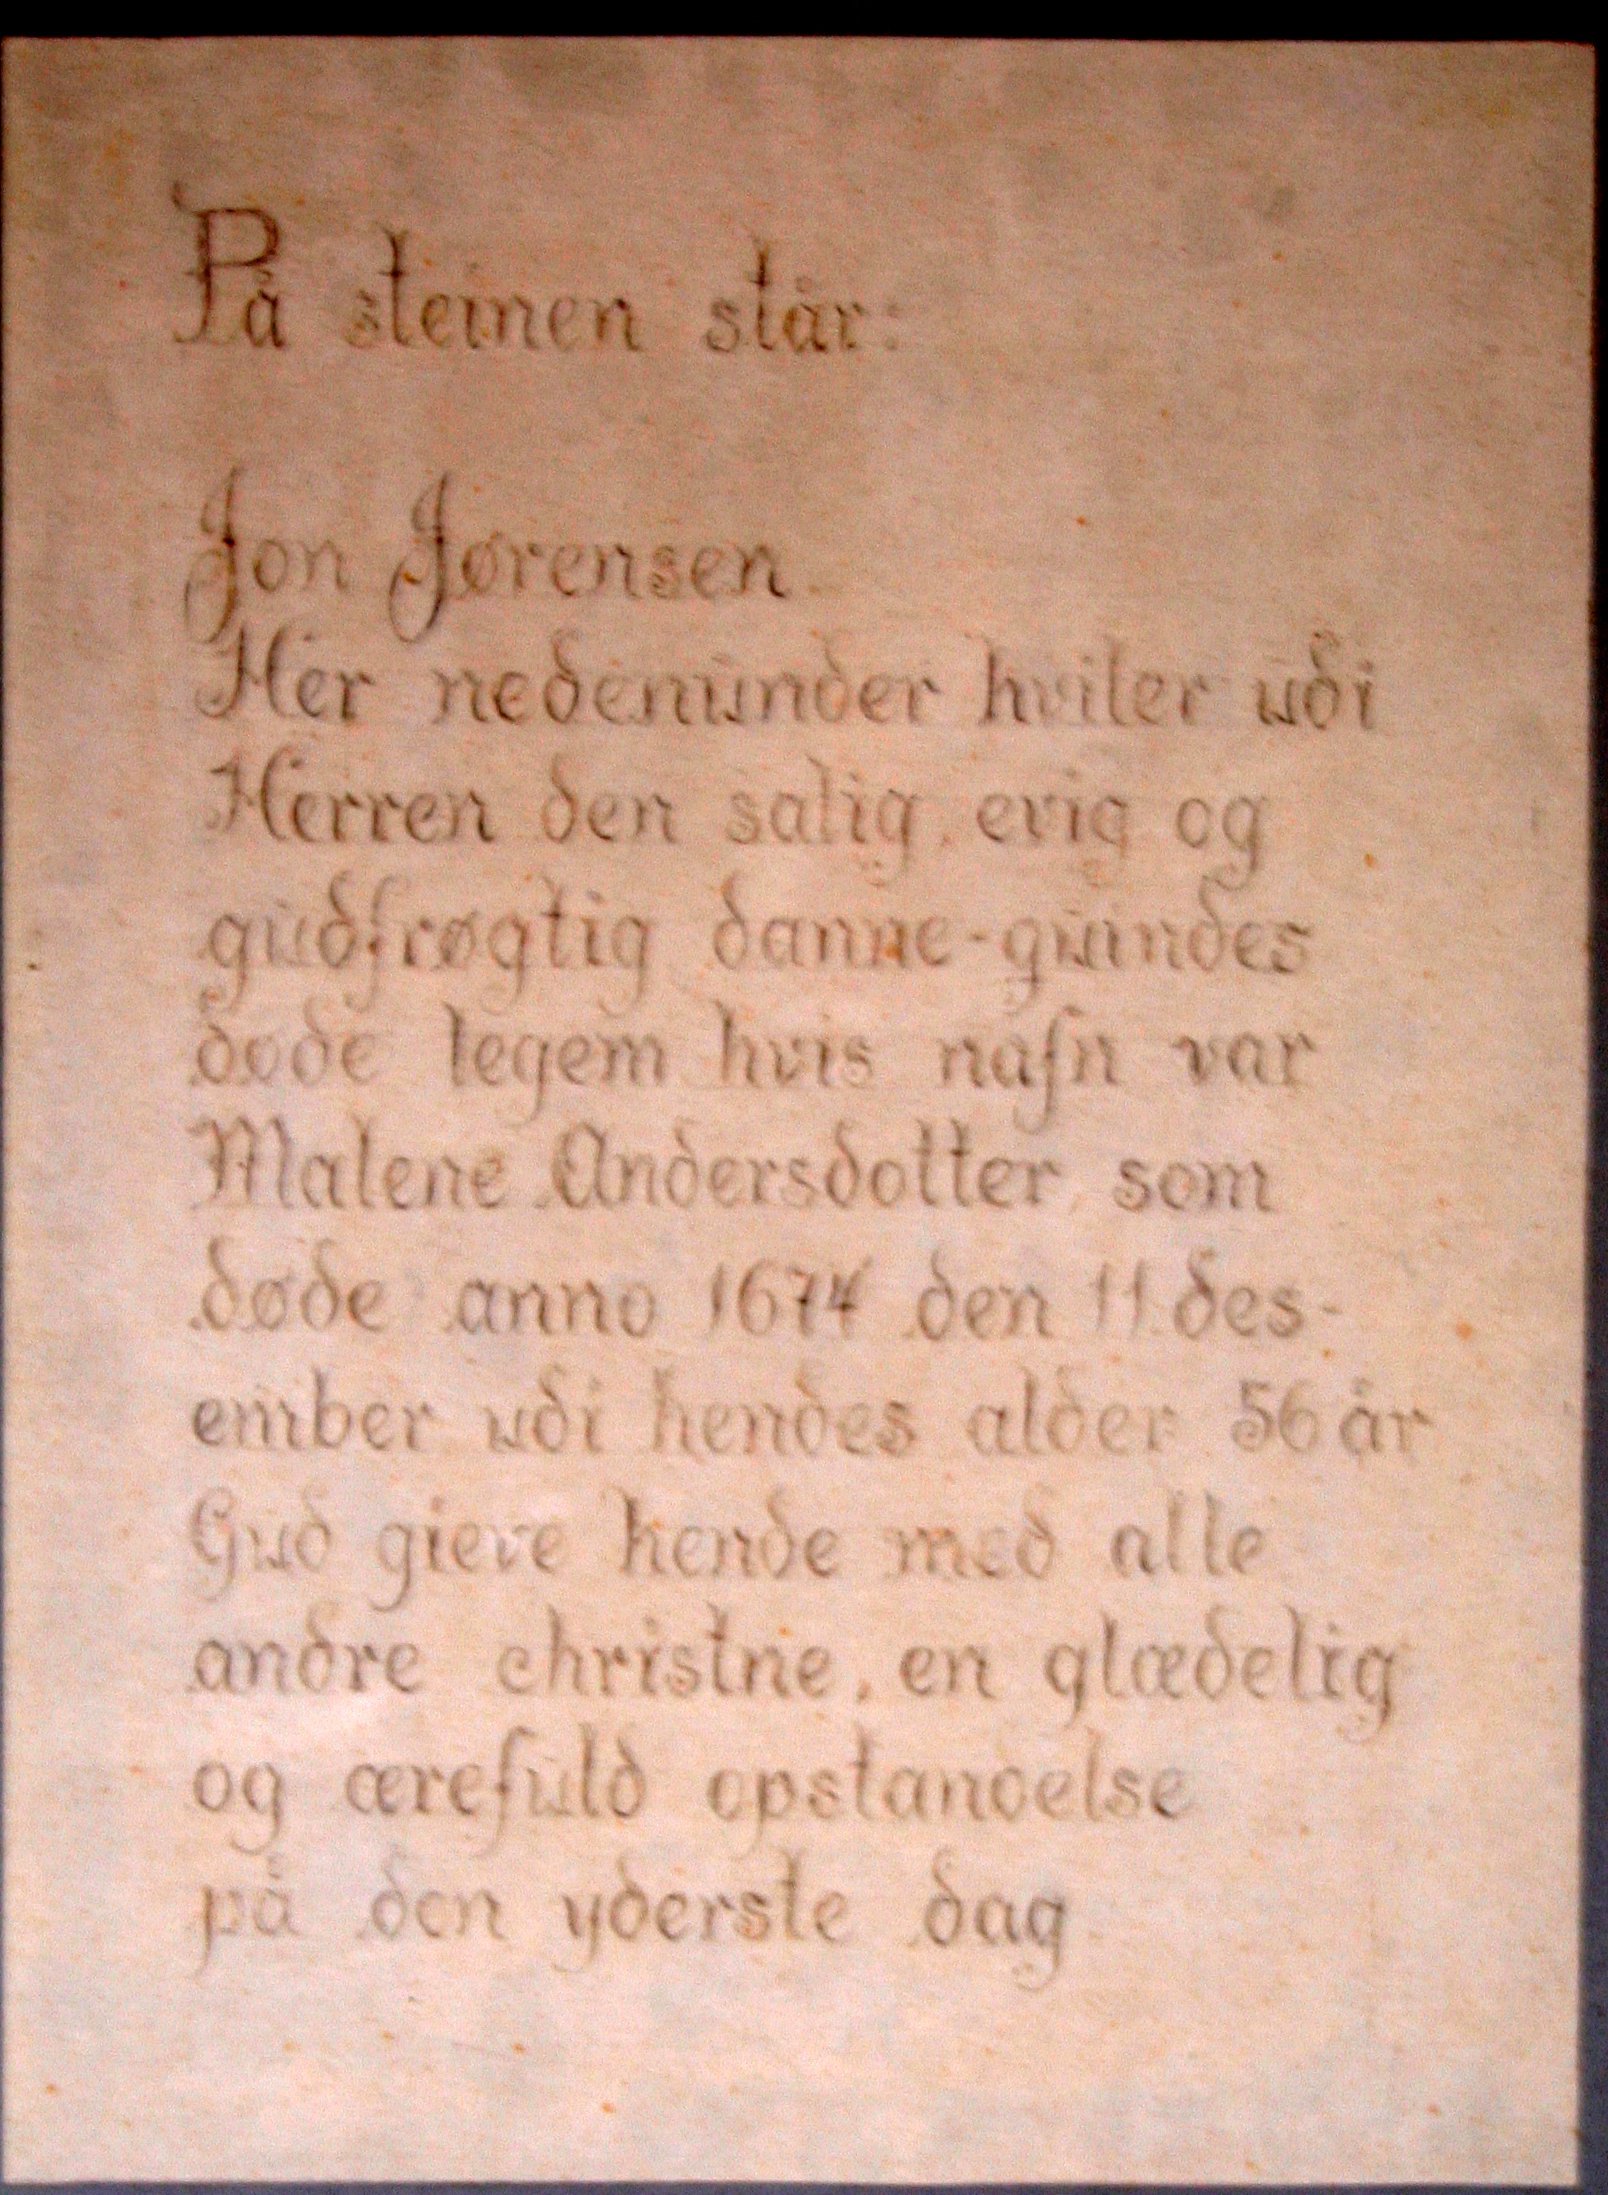 På steinen står:
Jon Jørensen
Her nedenunder hviler udi
Herren den salig, evig og
gudfrøgtig danne-quindes
døde legem hvis nafn var
Malene Andersdotter, som
døde anno 1674 den 11 des-
ember udi hendes alder 56 år
Gud gieve hende med alle
andre christne, en glædelig
og ærefuld opstandelse
på den yderste dag